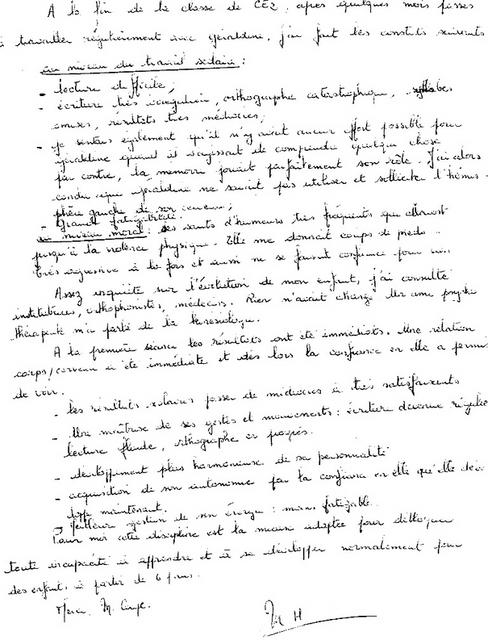 A la fin de la classe de CE2, après quelques mois passés
à travailler régulièrement avec Géraldine, j'ai fait les constats suivants
au niveau du travail scolaire :
- lecture difficile,
- écriture très irrégulière, orthographe catastrophique, syllabes
omises, résultats très médiocres,
- je sentais également qu'il n'y avait aucun effort possible pour
Géraldine quand il s'agissait de comprendre quelque chose
par contre, la mémoire jouait parfaitement son rôle. J'ai alors
conclu que Géraldine ne savait pas utiliser et solliciter l'hémis-
phère gauche de son cerveau;
- Grande fatigabilité.
au niveau moral : des sauts d'humeurs très fréquents qui allaient
jusqu'à la violence physique. Elle me donnait coups de pieds
très agressive à la fois et aussi ne se faisait confiance pour rien
Assez inquiète sur l'évolution de mon enfant, j'ai consulté
institutrices, orthophonistes, médecins. Rien n'avait changé. Une amie psycho
thérapeute m'a parlé de la kinésiologie.
A la première séance les résultats ont été immédiats. Une relation
corps/cerveau a été immédiate et dès lors la confiance en elle a permis
de voir.
- les résultats scolaires passer de médiocres à très satisfaisants
- Une maîtrise de ses gestes et mouvements : écriture devenue régulière
lecture fluide, orthographe en progrès.
- développement plus harmonieux de sa personnalité
- acquisition de son autonomie par la confiance en elle qu'elle déve
loppe maintenant.
- Meilleure gestion de son énergie : moins fatigable.
Pour moi cette discipline est la mieux adaptée pour débloquer
toute incapacité à apprendre et à se développer normalement pour
des enfants à partir de 6 ans.
Merci M.
H